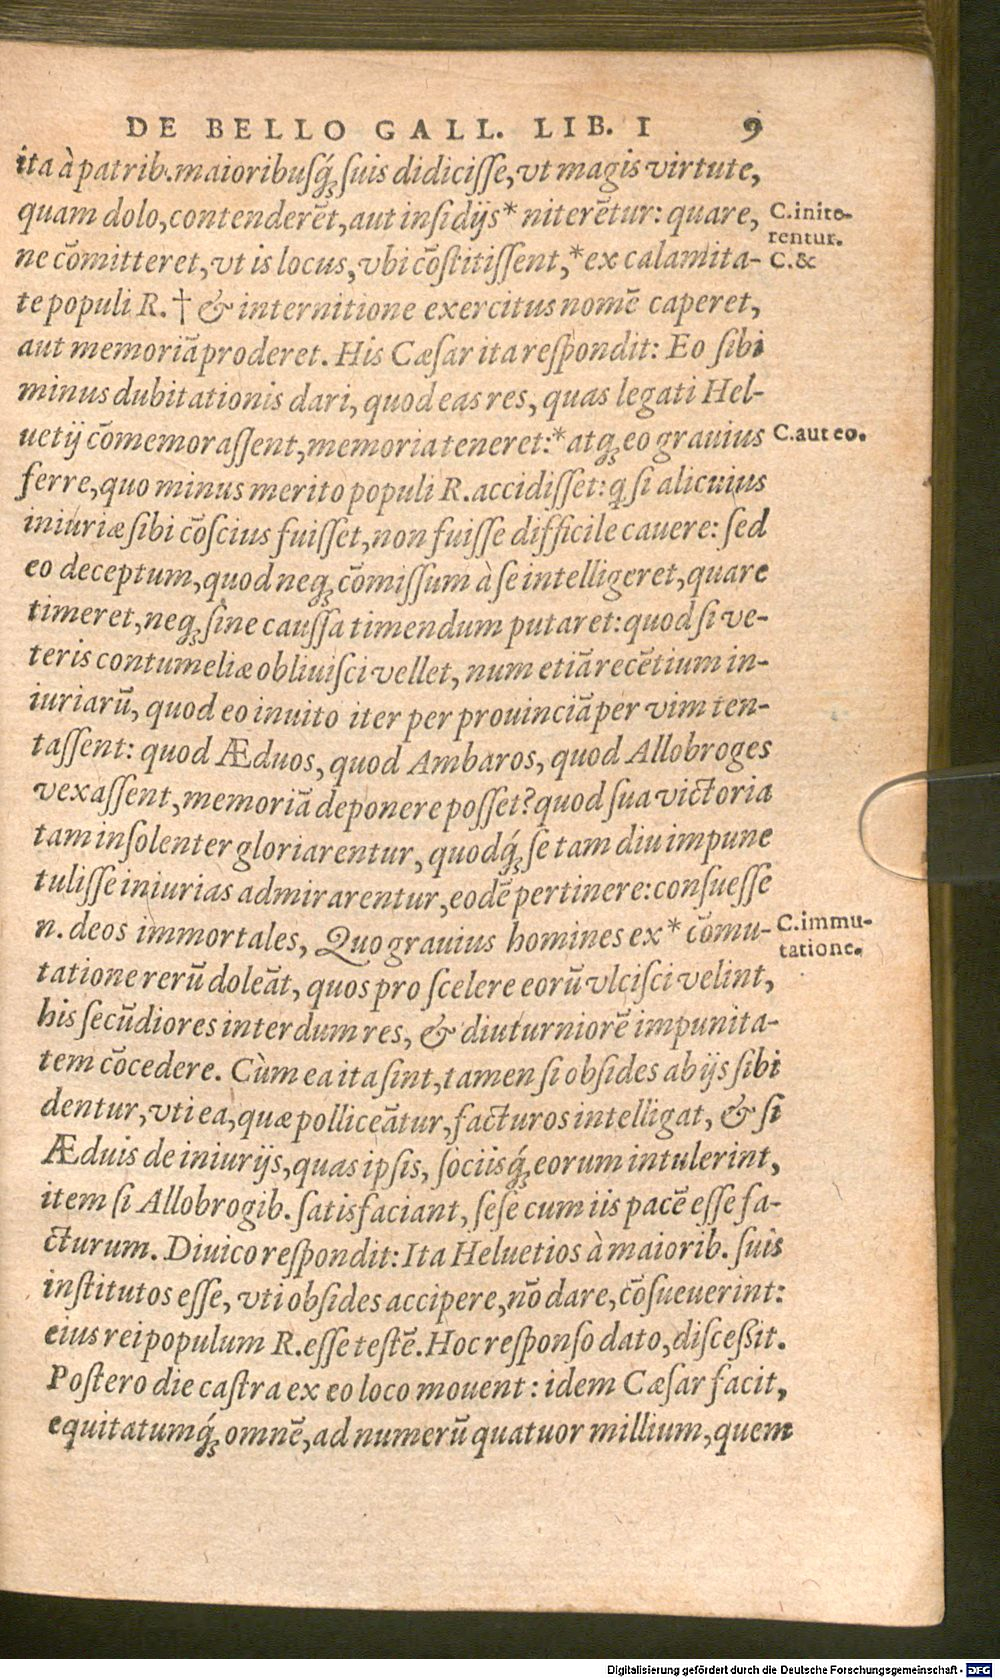 DE BELLO GALL. LIB. I 9
ita à patrib. maioribusq́; suis didicisse, vt magis virtute,
quam dolo, contenderẽt, aut insidijs* niterẽtur: quare,
C. inite-
rentur.
ne cõmitteret, vt is locus, vbi cõstitissent,* ex calamita-
C. &
te populi R. † & internitione exercitus nomẽ caperet,
aut memoriã proderet. His Cæsar ita respondit: Eo sibi
minus dubitationis dari, quod eas res, quas legati Hel-
uetij cõmemorassent, memoria teneret:* atq; eo grauius
C. aut eo.
ferre, quo minus merito populi R. accidisset: q; si alicuius
iniuriæ sibi cõscius fuisset, non fuisse difficile cauere: sed
eo deceptum, quod neq; cõmissum à se intelligeret, quare
timeret, neq; sine caussa timendum putaret: quod si ve-
teris contumeliæ obliuisci vellet, num etiã recẽtium in-
iuriarũ, quod eo inuito iter per prouinciã per vim ten-
tassent: quod Æduos, quod Ambaros, quod Allobroges
vexassent, memoriã deponere posset? quod sua victoria
tam insolenter gloriarentur, quodq́; se tam diu impune
tulisse iniurias admirarentur, eodẽ pertinere: consuesse
n. deos immortales, Quo grauius homines ex* cõmu-
C. immu-
tatione.
tatione rerũ doleãt, quos pro scelere eorũ vlcisci velint,
his secũdiores interdum res, & diuturniorẽ impunita-
tem cõcedere. Cùm ea ita sint, tamen si obsides ab ijs sibi
dentur, vti ea, quæ polliceãtur, facturos intelligat, & si
Æduis de iniurijs, quas ipsis, sociisq́; eorum intulerint,
item si Allobrogib. satisfaciant, sese cum iis pacẽ esse fa-
cturum. Diuico respondit: Ita Heluetios à maiorib. suis
institutos esse, vti obsides accipere, nõ dare, cõsueuerint:
eius rei populum R. esse testẽ. Hoc responso dato, disceßit.
Postero die castra ex eo loco mouent: idem Cæsar facit,
equitatumq́; omnẽ, ad numerũ quatuor millium, quem
Digitalisierung gefördert durch die Deutsche Forschungsgemeinschaft - DFG